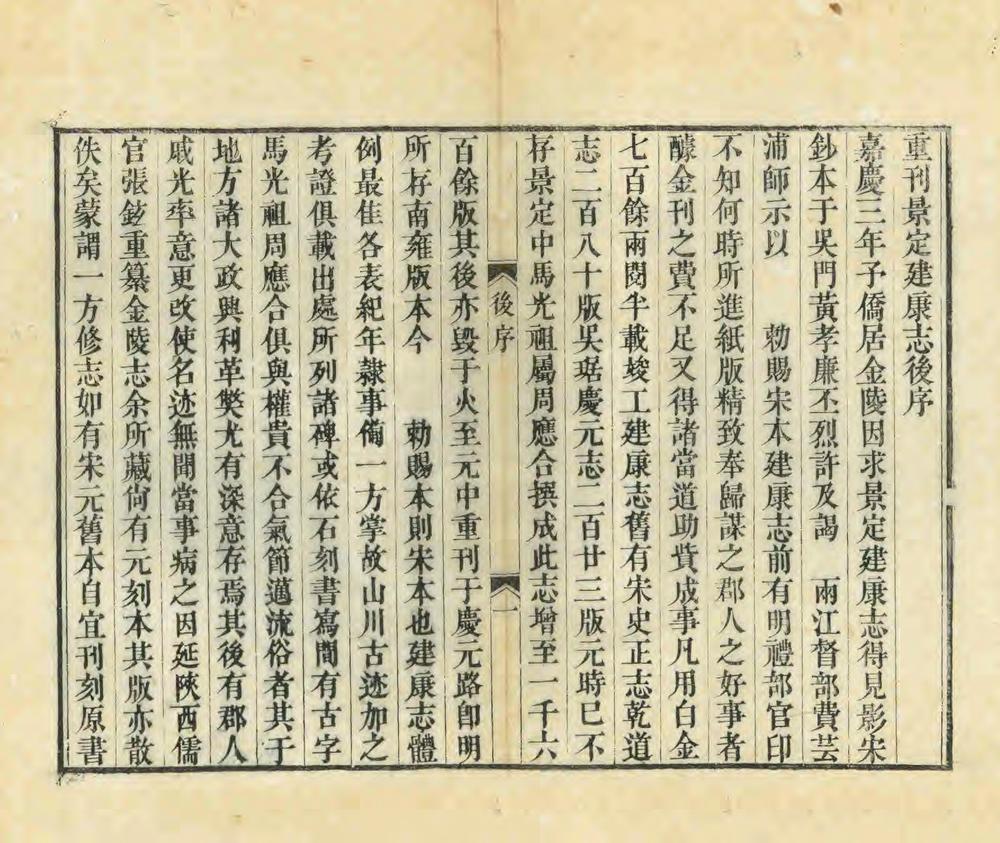 重刊景定建康志後序
嘉慶三年予僑居金陵因求景定建康志得見影宋
鈔本于吳門黃孝廉丕烈許及謁　兩江督部費芸
浦師示以　　勅賜宋本建康志前有明禮部官印
不知何時所進紙版精致奉歸謀之郡人之好事者
醵金刊之費不足又得諸當道助貲成事凡用白金
七百餘兩閱半載竣工建康志舊有宋史正志乾道
志二百八十版吳琚慶元志二百廿三版元時已不
存景定中馬光祖屬周應合撰成此志增至一千六
後序
一
百餘版其後亦毀于火至元中重刊于慶元路卽明
所存南雍版本今　　勅賜本則宋本也建康志體
例最佳各表紀年隸事備一方掌故山川古迹加之
考證俱載出處所列諸碑或依石刻書寫間有古字
馬光祖周應合俱與權貴不合氣節邁流俗者其于
地方諸大政興利革獘尤有深意存焉其後有郡人
戚光率意更改使名迹無聞當事病之因延陜西儒
官張鉉重纂金陵志余所藏尙有元刻本其版亦散
佚矣蒙謂一方修志如有宋元舊本自宜刊刻原書